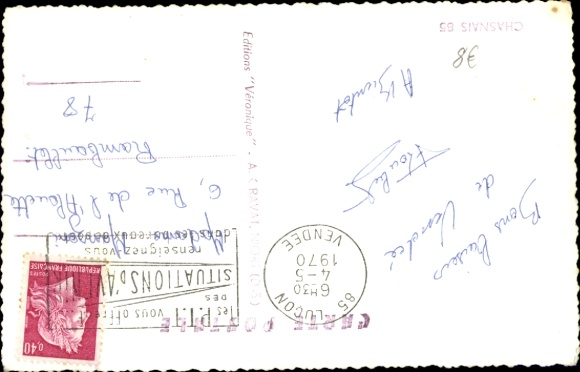 CHASNAIS 85
38
Bons baisers
de Vendée
A Bientôt
CARTE POSTALE
85 LUÇON
6H30
4-5
1970
VENDEE
les P.T.T.
vous offrent
DES
SITUATIONS D'AVENIR
renseignez-vous
dans les bureaux
0,40
REPUBLIQUE FRANÇAISE
POSTES
Madame
6, Rue de l'Alouette
Rambouillet
78
Editions "Véronique" - A.